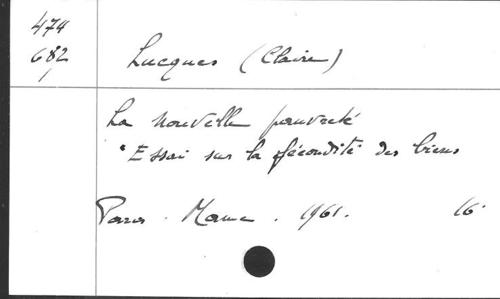 474
682
Lucques (Claire)
La nouvelle pauvreté
"Essai sur la fécondité des biens
Paris. Mame. 1961. 16°